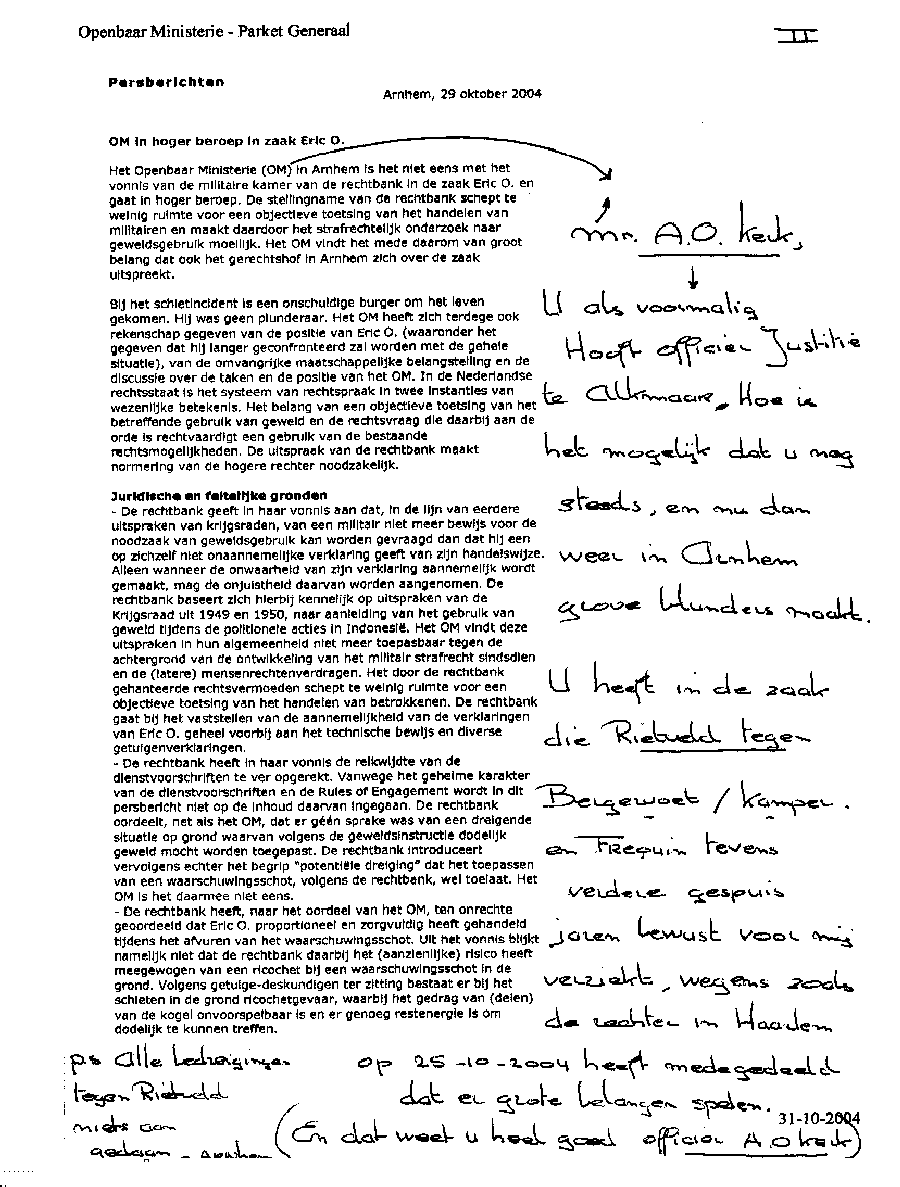 Openbaar Ministerie - Parket Generaal
II
Persberichten
Arnhem, 29 oktober 2004
OM in hoger beroep in zaak Eric O.
Het Openbaar Ministerie (OM) in Arnhem is het niet eens met het
vonnis van de militaire kamer van de rechtbank in de zaak Eric O. en
gaat in hoger beroep. De stellingname van de rechtbank schept te
weinig ruimte voor een objectieve toetsing van het handelen van
militairen en maakt daardoor het strafrechtelijk onderzoek naar
geweldsgebruik moeilijk. Het OM vindt het mede daarom van groot
belang dat ook het gerechtshof in Arnhem zich over de zaak
uitspreekt.
Bij het schietincident is een onschuldige burger om het leven
gekomen. Hij was geen plunderaar. Het OM heeft zich terdege ook
rekenschap gegeven van de positie van Eric O. (waaronder het
gegeven dat hij langer geconfronteerd zal worden met de gehele
situatie), van de omvangrijke maatschappelijke belangstelling en de
discussie over de taken en de positie van het OM. In de Nederlandse
rechtsstaat is het systeem van rechtspraak in twee instanties van
wezenlijke betekenis. Het belang van een objectieve toetsing van het
betreffende gebruik van geweld en de rechtsvraag die daarbij aan de
orde is rechtvaardigt een gebruik van de bestaande
rechtsmogelijkheden. De uitspraak van de rechtbank maakt
normering van de hogere rechter noodzakelijk.
Juridische en feitelijke gronden
- De rechtbank geeft in haar vonnis aan dat, in de lijn van eerdere
uitspraken van krijgsraden, van een militair niet meer bewijs voor de
noodzaak van geweldsgebruik kan worden gevraagd dan dat hij een
op zichzelf niet onaannemelijke verklaring geeft van zijn handelswijze.
Alleen wanneer de onwaarheid van zijn verklaring aannemelijk wordt
gemaakt, mag de onjuistheid daarvan worden aangenomen. De
rechtbank baseert zich hierbij kennelijk op uitspraken van de
Krijgsraad uit 1949 en 1950, naar aanleiding van het gebruik van
geweld tijdens de politionele acties in Indonesië. Het OM vindt deze
uitspraken in hun algemeenheid niet meer toepasbaar tegen de
achtergrond van de ontwikkeling van het militair strafrecht sindsdien
en de (latere) mensenrechtenverdragen. Het door de rechtbank
gehanteerde rechtsvermoeden schept te weinig ruimte voor een
objectieve toetsing van het handelen van betrokkenen. De rechtbank
gaat bij het vaststellen van de aannemelijkheid van de verklaringen
van Eric O. geheel voorbij aan het technische bewijs en diverse
getuigenverklaringen.
- De rechtbank heeft in haar vonnis de reikwijdte van de
dienstvoorschriften te ver opgerekt. Vanwege het geheime karakter
van de dienstvoorschriften en de Rules of Engagement wordt in dit
persbericht niet op de inhoud daarvan ingegaan. De rechtbank
oordeelt, net als het OM, dat er géén sprake was van een dreigende
situatie op grond waarvan volgens de geweldsinstructie dodelijk
geweld mocht worden toegepast. De rechtbank introduceert
vervolgens echter het begrip "potentiële dreiging" dat het toepassen
van een waarschuwingsschot, volgens de rechtbank, wel toelaat. Het
OM is het daarmee niet eens.
- De rechtbank heeft, naar het oordeel van het OM, ten onrechte
geoordeeld dat Eric O. proportioneel en zorgvuldig heeft gehandeld
tijdens het afvuren van het waarschuwingsschot. Uit het vonnis blijkt
namelijk niet dat de rechtbank daarbij het (aanzienlijke) risico heeft
meegewogen van een ricochet bij een waarschuwingsschot in de
grond. Volgens getuige-deskundigen ter zitting bestaat er bij het
schieten in de grond ricochetgevaar, waarbij het gedrag van (delen)
van de kogel onvoorspelbaar is en er genoeg restenergie is om
dodelijk te kunnen treffen.
mr. A.O. kerk,
U als voormalig
Hooft officier Justitie
te Alkmaar, Hoe is
het mogelijk dat u nog
steeds, en nu dan
weer in Arnhem
grove blunders maakt.
U heeft in de zaak
die Rietveld tegen
Bergewoet / Kamper.
en Frequin tevens
verdere gespuis
jaren bewust voor mij
verziekt, wegens zoals
de rechter in Haarlem
op 25-10-2004 heeft medegedeeld
dat er grote belangen spelen.
(En dat weet u heel goed officier A.O kerk)
ps Alle bedreigingen
tegen Rietveld
niets aan
gedaan - Arnhem
31-10-2004